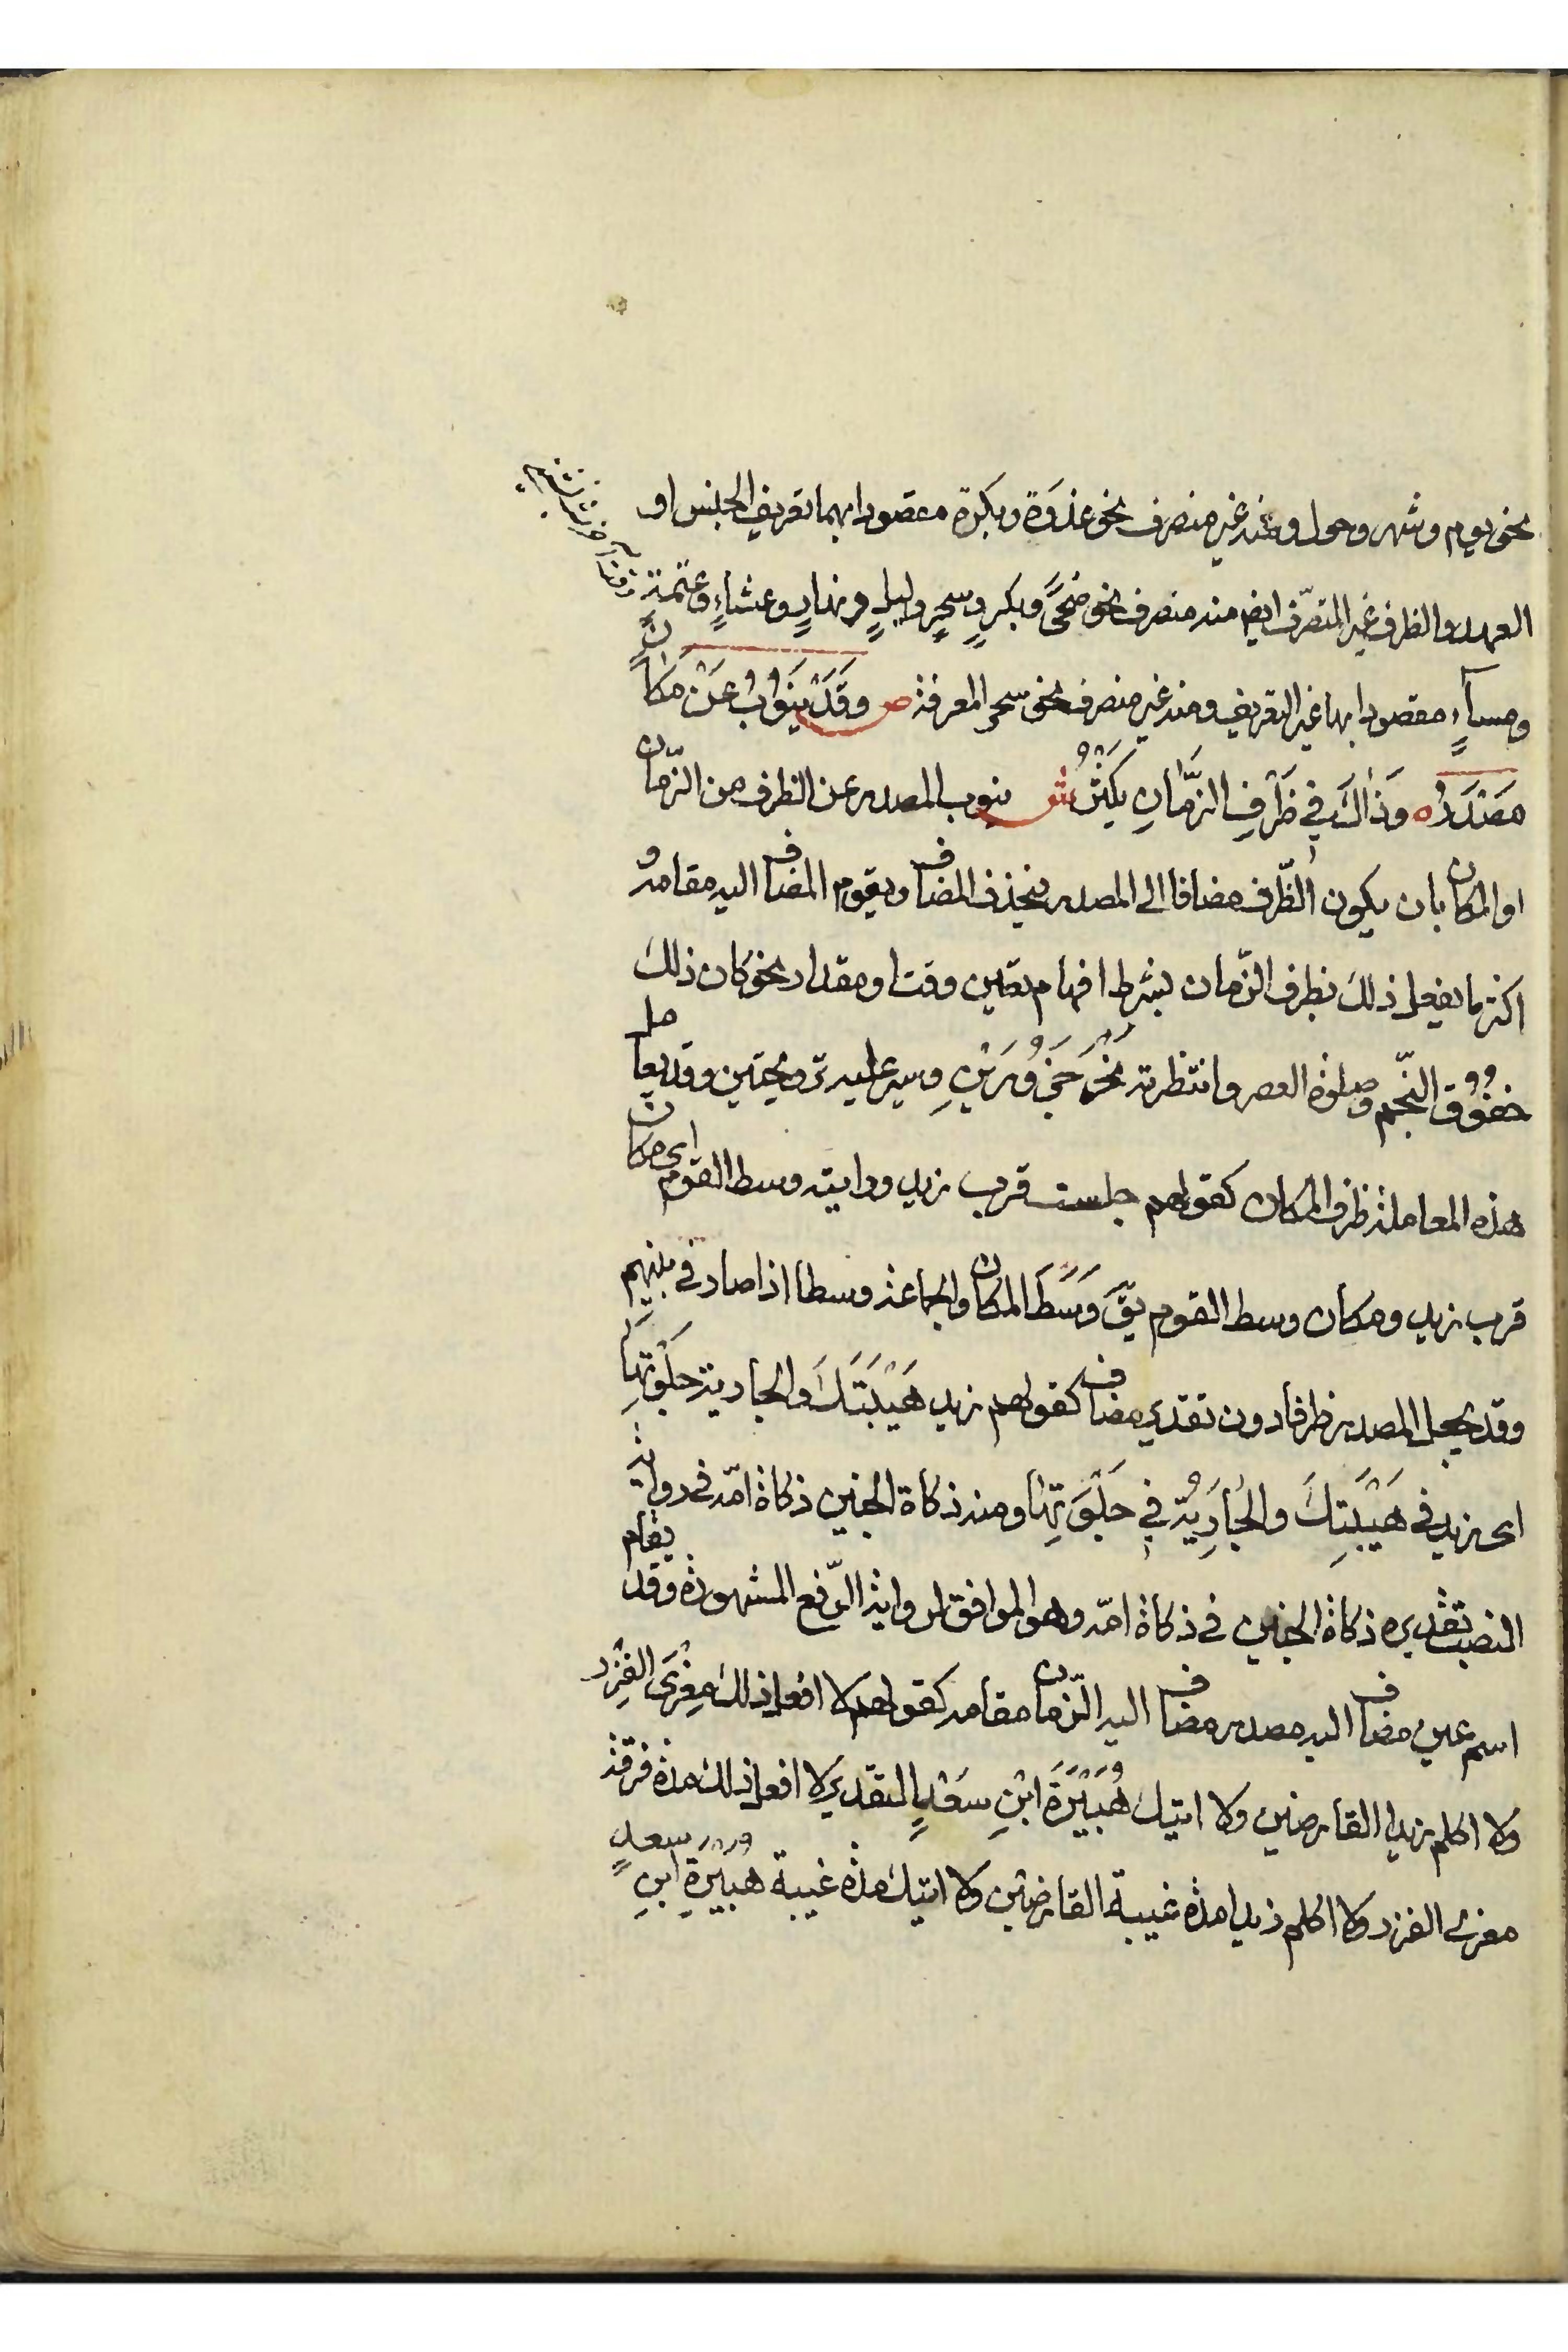 نحو يوم وشهر وحول ومنه غير منصرف نحو غدوة وبكرة مقصودا بهما تعريف الجنس او
العهد والظرف غير المتصرّف ايض منه منصرف نحو ضحىً وبكرٍ وسحرٍ وليلٍ ونهارٍ وعشاءٍ وعتمةٍ
ومساءٍ مقصودا بها غير التعريف ومنه غير منصرف نحو سحر المعرفة ص وَقَدْ يَنُوْبُ عَنْ مَكَانٍ
مَصْدَرُ ٥ وَذَاكَ فِي ظَرْفِ الزَّمَانِ يَكْثُرُ ش ينوب المصدر عن الظرف من الزّمان
او المكان بان يكون الظّرف مضافا الى المصدر فيحذف المضاف ويقوم المضاف اليه مقامهُ
اكثر ما يفعل ذلك بظرف الزّمان بشرط افهام تعيين وقت او مقدار نحو كان ذلك
خفُوُق النّجم وصلوة العصر وانتظرته نَحْرَ جَزُورَيْنِ وسير عليه ترويحتين وقد يعامل
هذه المعاملة ظرف المكان كقولهم جلست قرب زيد ورايته وسط القوم اى مكان
قرب زيد ومكان وسط القوم يقَ وَسَطَ المكان والجماعة وسطا اذا صار في بينهم
وقد يجعل المصدر ظرفا دون تقدير مضاف كقولهم زيد هَيْبَتَكَ والجارية جَلْوَتَهَا
اى زيد في هَيْبَتِكَ والجَارِيَةُ فِي جَلْوَتِهَا ومنه ذكاة الجنين ذكاة امّه في رواية
النصب تقديره ذكاة الجنين في ذكاة امّه وهو الموافق لرواية الرّفع المشهورة وقد يقام
اسم عين مضاف اليه مصدر مضاف اليه الزّمان مقامه كقولهم لا افعل ذلك مِعْزَى الفِزْرِ
ولا اكلم زيدا القارضين ولا اتيك هُبَيْرَةَ ابْنِ سَعْدٍ التقدير لا افعل ذلك مدة فرقة
معزى الفزر ولا اكلم زيدا مدة غيبة القارضين ولا اتيك مدة غيبة هُبَيْرَةِ ابنِ سعدٍ